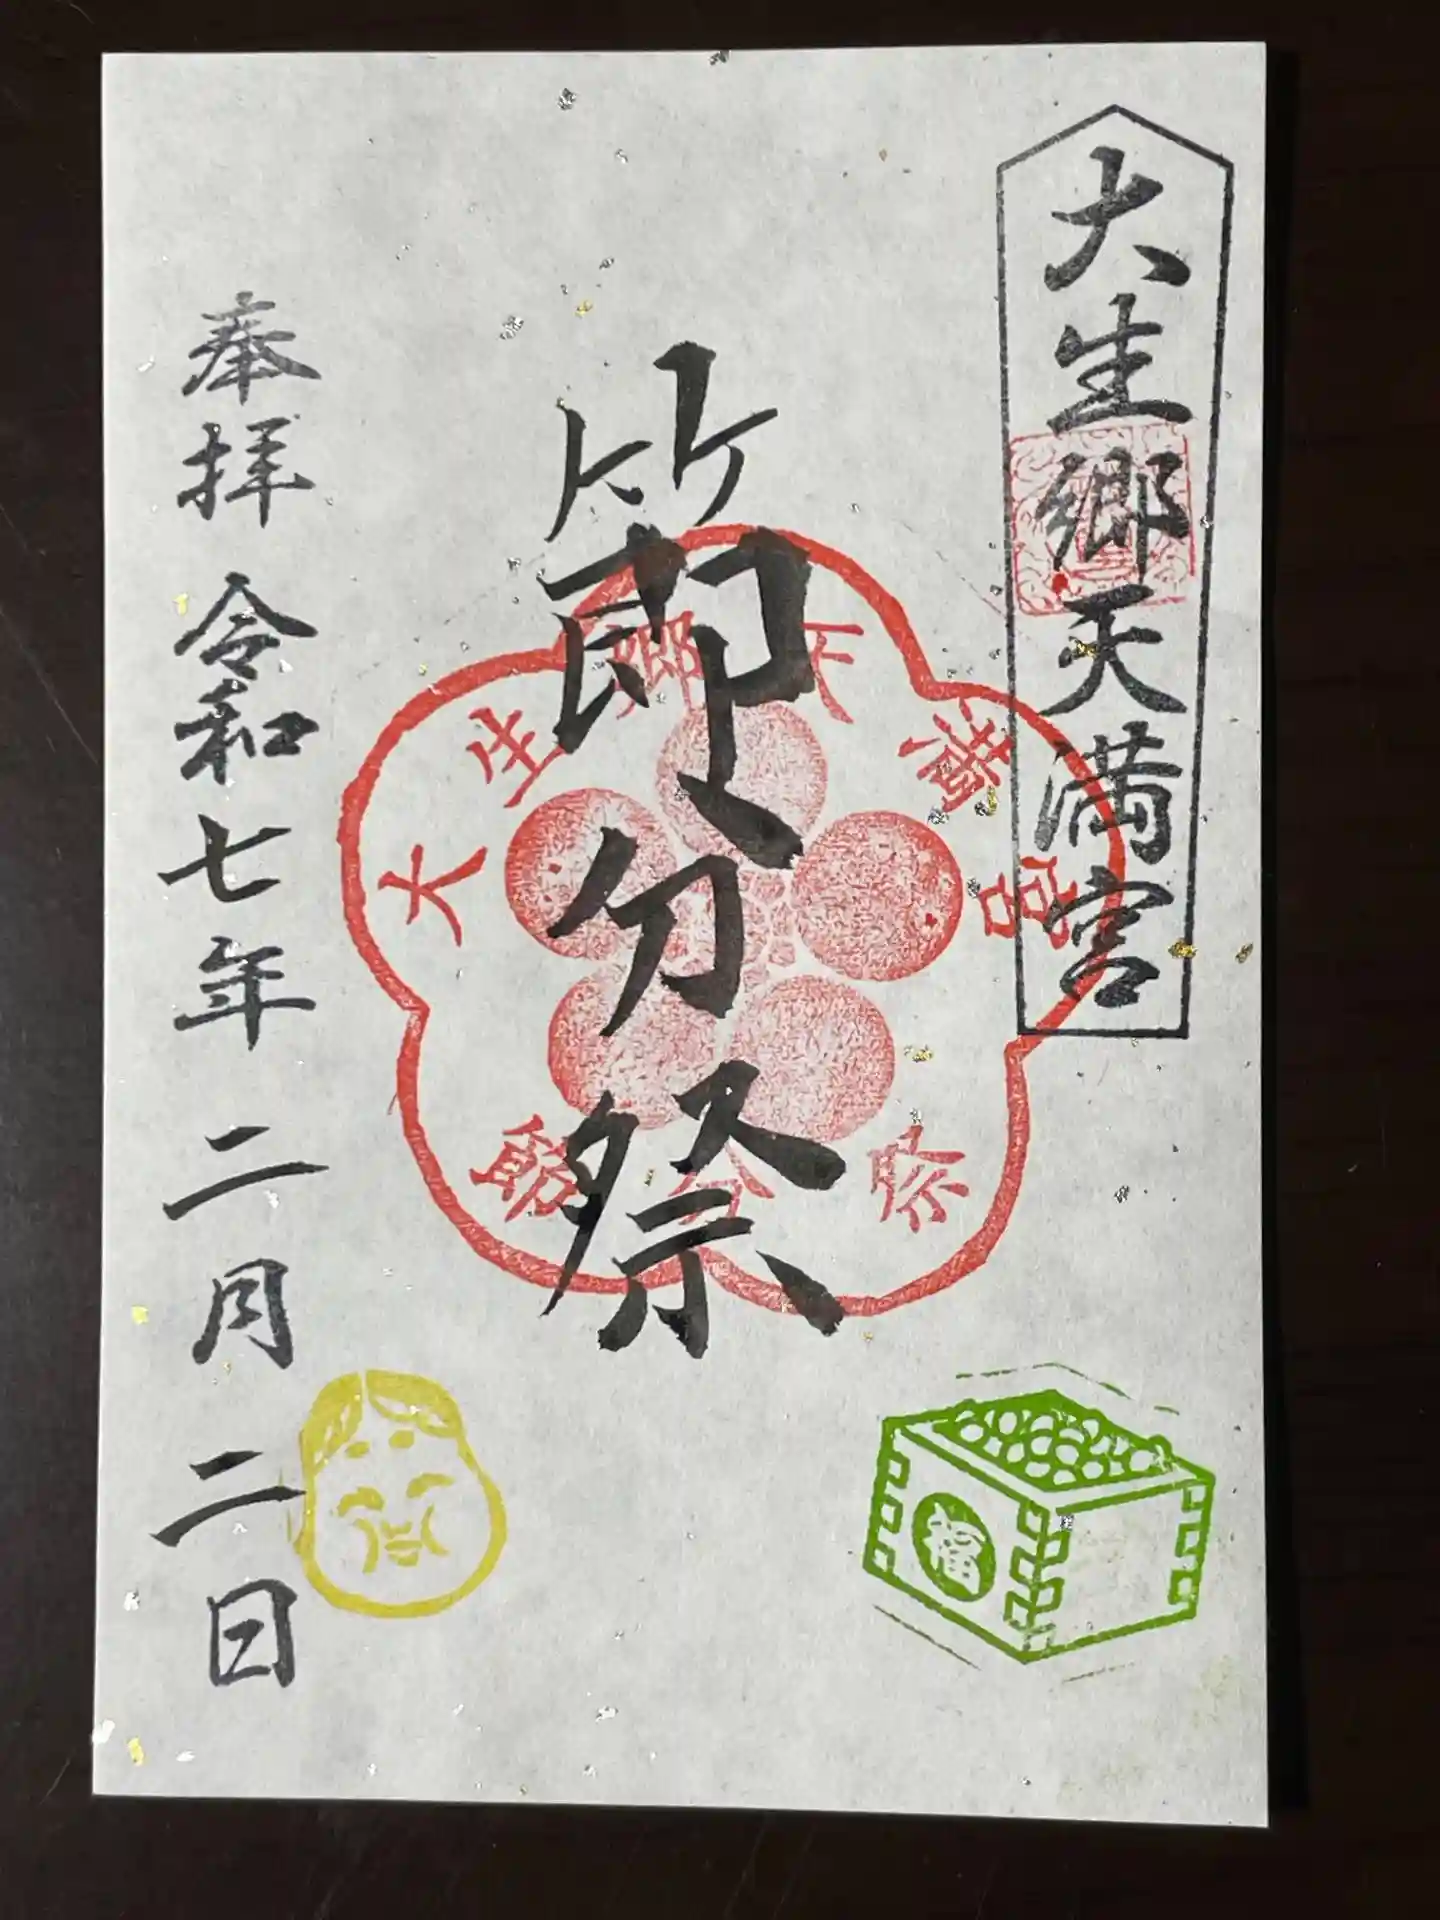 大生郷天満宮
節分祭
大生郷天満宮
節分祭
奉拝 令和七年二月二日
福